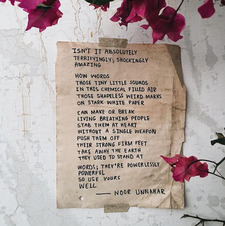 ISN'T IT ABSOLUTELY
TERRIFYINGLY, SHOCKINGLY
AMAZING
HOW WORDS
THOSE TINY LITTLE SOUNDS
IN THIS CHEMICAL FILLED AIR
THOSE SHAPELESS WEIRD MARKS
ON STARK WHITE PAPER
CAN MAKE OR BREAK
LIVING BREATHING PEOPLE
STAB THEM AT HEART
WITHOUT A SINGLE WEAPON
PUSH THEM OFF
THEIR STRONG FIRM FEET
TAKE AWAY THE EARTH
THEY USED TO STAND AT
WORDS; THEY'RE POWERLESSLY
POWERFUL
SO USE YOURS
WELL
— NOOR UNNAHAR